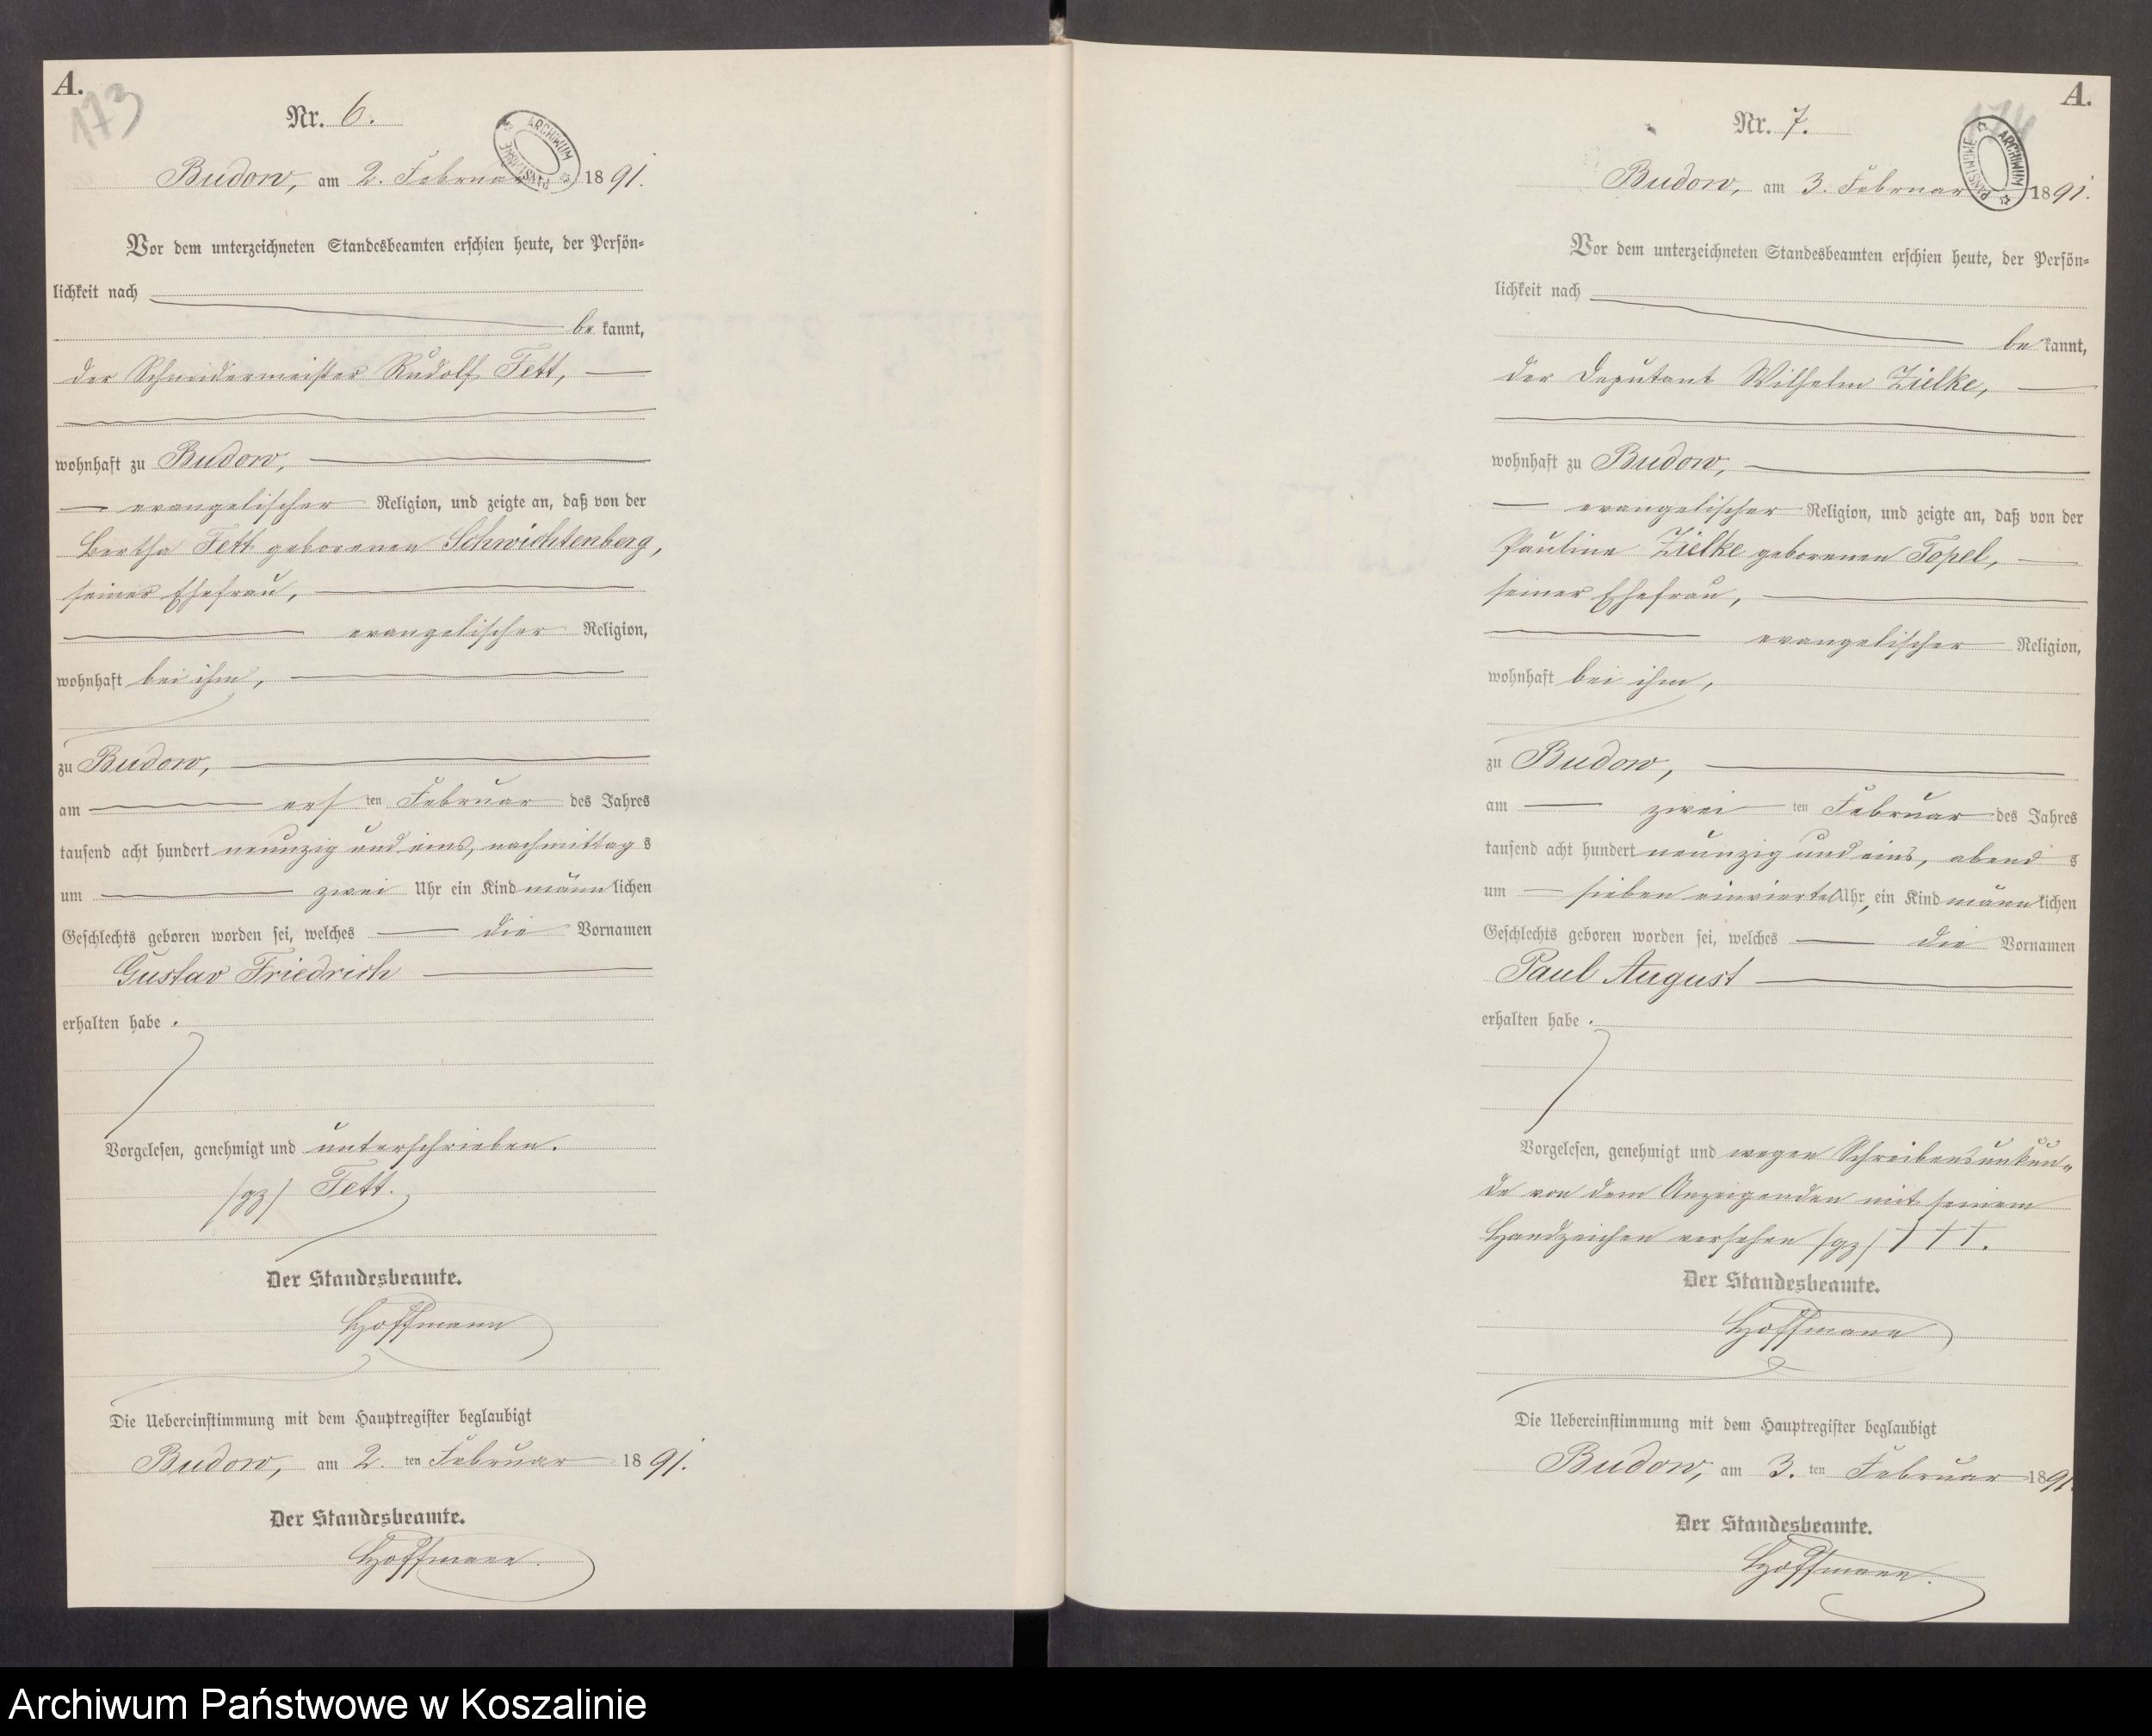 A.
173
Nr. 6.
ARCHIWUM PAŃSTWOWE
Budow, am 2. Februar 1891.
Vor dem unterzeichneten Standesbeamten erschien heute, der Persön=
lichkeit nach
be kannt,
der Schneidermeister Rudolf Fett,
wohnhaft zu Budow,
evangelischer Religion, und zeigte an, daß von der
Bertha Fett geborenen Schwichtenberg,
seiner Ehefrau,
evangelischer Religion,
wohnhaft bei ihm,
zu Budow,
am ersten Februar des Jahres
tausend acht hundert neunzig und eins, nachmittags
um zwei Uhr ein Kind männlichen
Geschlechts geboren worden sei, welches die Vornamen
Gustav Friedrich
erhalten habe.
Vorgelesen, genehmigt und unterschrieben.
/gz/ Fett.
Der Standesbeamte.
Hoffmann
Die Uebereinstimmung mit dem Hauptregister beglaubigt
Budow, am 2. ten Februar 1891.
Der Standesbeamte.
Hoffmann.
A.
174
Nr. 7.
ARCHIWUM PAŃSTWOWE
Budow, am 3. Februar 1891.
Vor dem unterzeichneten Standesbeamten erschien heute, der Persön=
lichkeit nach
be kannt,
der Deputant Wilhelm Zielke,
wohnhaft zu Budow,
evangelischer Religion, und zeigte an, daß von der
Pauline Zielke geborenen Topel,
seiner Ehefrau,
evangelischer Religion,
wohnhaft bei ihm,
zu Budow,
am zweiten Februar des Jahres
tausend acht hundert neunzig und eins, abends
um sieben einviertel Uhr, ein Kind männlichen
Geschlechts geboren worden sei, welches die Vornamen
Paul August
erhalten habe.
Vorgelesen, genehmigt und wegen Schreibensunkun=
de von dem Anzeigenden mit seinem
Handzeichen versehen /gz/ † † †.
Der Standesbeamte.
Hoffmann
Die Uebereinstimmung mit dem Hauptregister beglaubigt
Budow, am 3. ten Februar 1891
Der Standesbeamte.
Hoffmann.
Archiwum Państwowe w Koszalinie